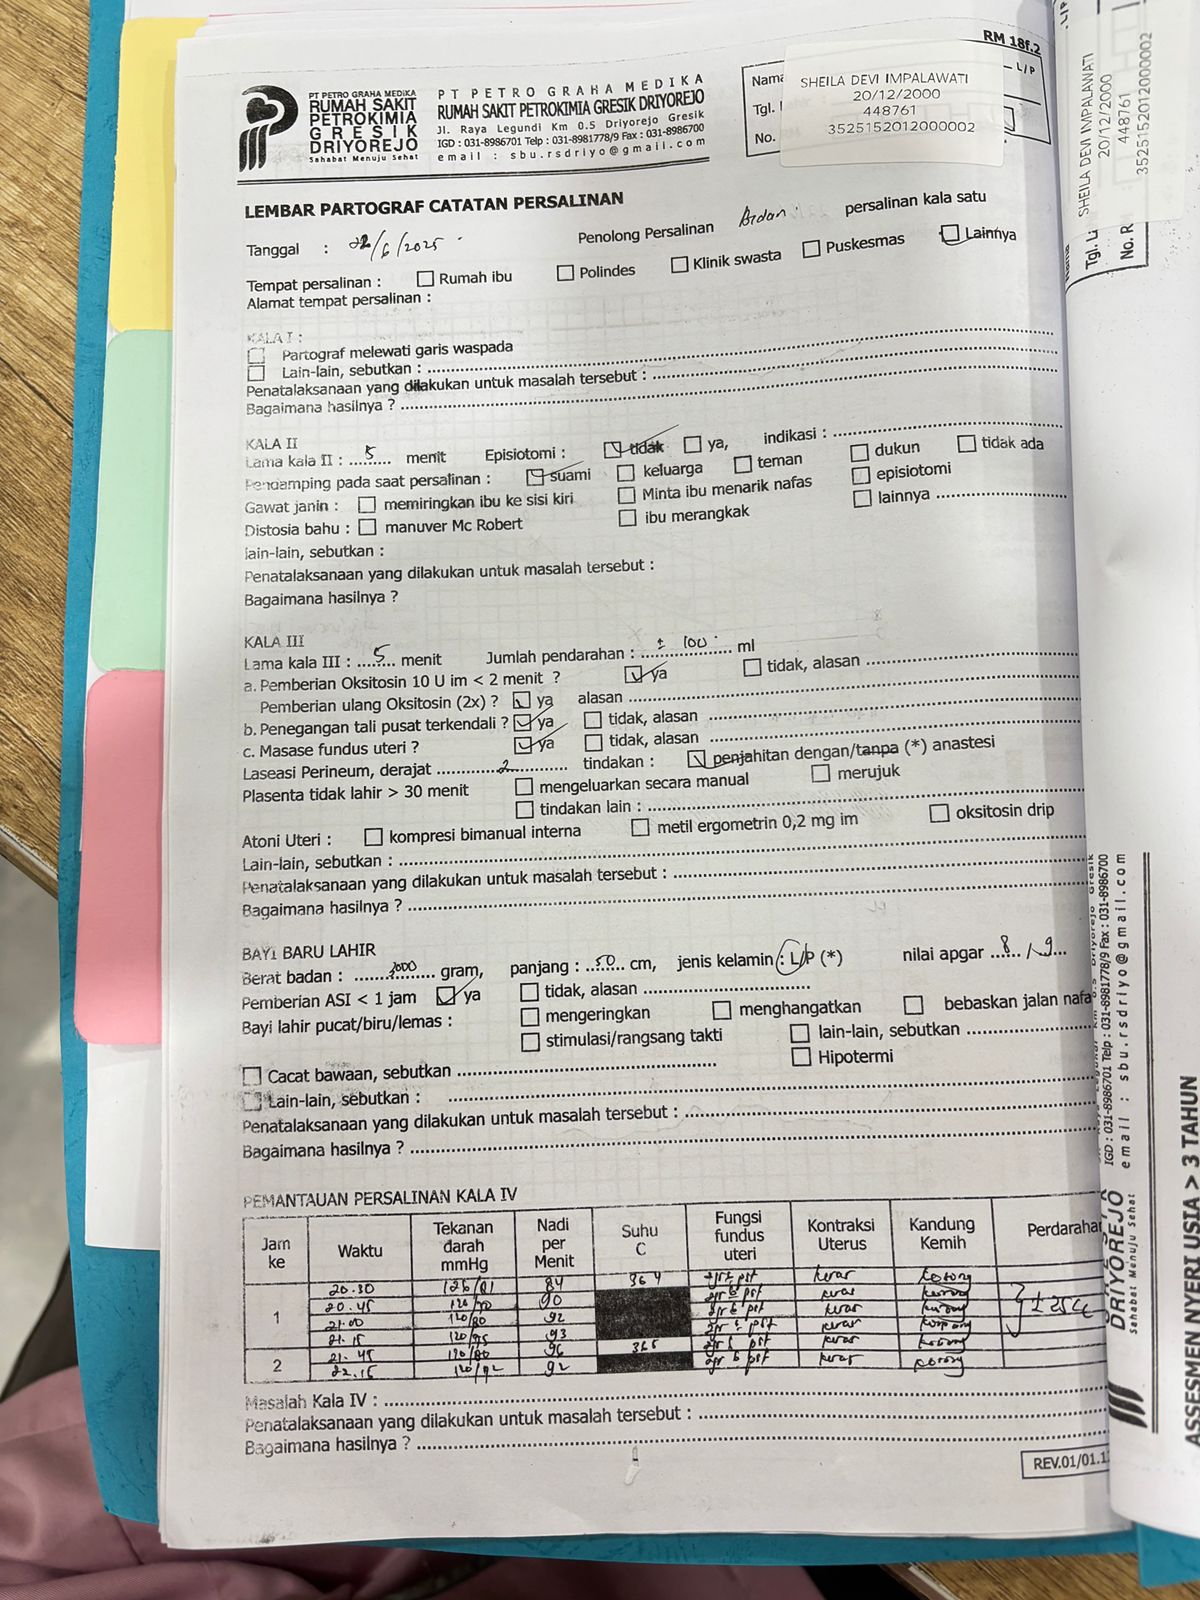 RM 18f.2
PT PETRO GRAHA MEDIKA
RUMAH SAKIT
PETROKIMIA
GRESIK
DRIYOREJO
Sahabat Menuju Sehat
PT PETRO GRAHA MEDIKA
RUMAH SAKIT PETROKIMIA GRESIK DRIYOREJO
Jl. Raya Legundi Km 0.5 Driyorejo Gresik
IGD : 031-8986701 Telp : 031-8981778/9 Fax : 031-8986700
email : sbu.rsdriyo@gmail.com
Nama L/P
Tgl.
No.
SHEILA DEVI IMPALAWATI
20/12/2000
448761
3525152012000002
LEMBAR PARTOGRAF CATATAN PERSALINAN
Tanggal : 22/6/2025 Penolong Persalinan Bidan persalinan kala satu
Tempat persalinan : Rumah ibu Polindes Klinik swasta Puskesmas Lainnya
Alamat tempat persalinan :
KALA I :
Partograf melewati garis waspada
Lain-lain, sebutkan :
Penatalaksanaan yang dilakukan untuk masalah tersebut :
Bagaimana hasilnya ?
KALA II
Lama kala II : 5 menit Episiotomi : tidak ya, indikasi :
Pendamping pada saat persalinan : suami keluarga teman dukun tidak ada
Gawat janin : memiringkan ibu ke sisi kiri Minta ibu menarik nafas episiotomi
Distosia bahu : manuver Mc Robert ibu merangkak lainnya
lain-lain, sebutkan :
Penatalaksanaan yang dilakukan untuk masalah tersebut :
Bagaimana hasilnya ?
KALA III
Lama kala III : 5 menit Jumlah pendarahan : ± 100 ml
a. Pemberian Oksitosin 10 U im < 2 menit ? ya tidak, alasan
Pemberian ulang Oksitosin (2x) ? ya alasan
b. Penegangan tali pusat terkendali ? ya tidak, alasan
c. Masase fundus uteri ? ya tidak, alasan
Laseasi Perineum, derajat 2 tindakan : penjahitan dengan/tanpa (*) anastesi
Plasenta tidak lahir > 30 menit mengeluarkan secara manual merujuk
tindakan lain :
Atoni Uteri : kompresi bimanual interna metil ergometrin 0,2 mg im oksitosin drip
Lain-lain, sebutkan :
Penatalaksanaan yang dilakukan untuk masalah tersebut :
Bagaimana hasilnya ?
BAYI BARU LAHIR
Berat badan : 3000 gram, panjang : 50 cm, jenis kelamin : L/P (*) nilai apgar 8 / 9
Pemberian ASI < 1 jam ya tidak, alasan
Bayi lahir pucat/biru/lemas : mengeringkan menghangatkan bebaskan jalan nafa
stimulasi/rangsang takti lain-lain, sebutkan
Hipotermi
Cacat bawaan, sebutkan
Lain-lain, sebutkan :
Penatalaksanaan yang dilakukan untuk masalah tersebut :
Bagaimana hasilnya ?
PEMANTAUAN PERSALINAN KALA IV
Jam ke Waktu Tekanan darah mmHg Nadi per Menit Suhu C Fungsi fundus uteri Kontraksi Uterus Kandung Kemih Perdarahan
1 20.30 126/81 84 364 keras kosong
20.45 90 keras kosong
21.00 120/80 92 keras kosong
21.15 120/75 93 keras kosong
2 21.45 120/80 96 365 keras kosong
22.15 92 keras kosong
Masalah Kala IV :
Penatalaksanaan yang dilakukan untuk masalah tersebut :
Bagaimana hasilnya ?
REV.01/01.1
L/P
SHEILA DEVI IMPALAWATI
20/12/2000
448761
3525152012000002
Tgl. L
No. R
IGD : 031-8986701 Telp : 031-8981778/9 Fax : 031-8986700
email : sbu.rsdriyo@gmail.com
DRIYOREJO
Sahabat Menuju Sehat
ASSESMEN NYERI USIA > 3 TAHUN